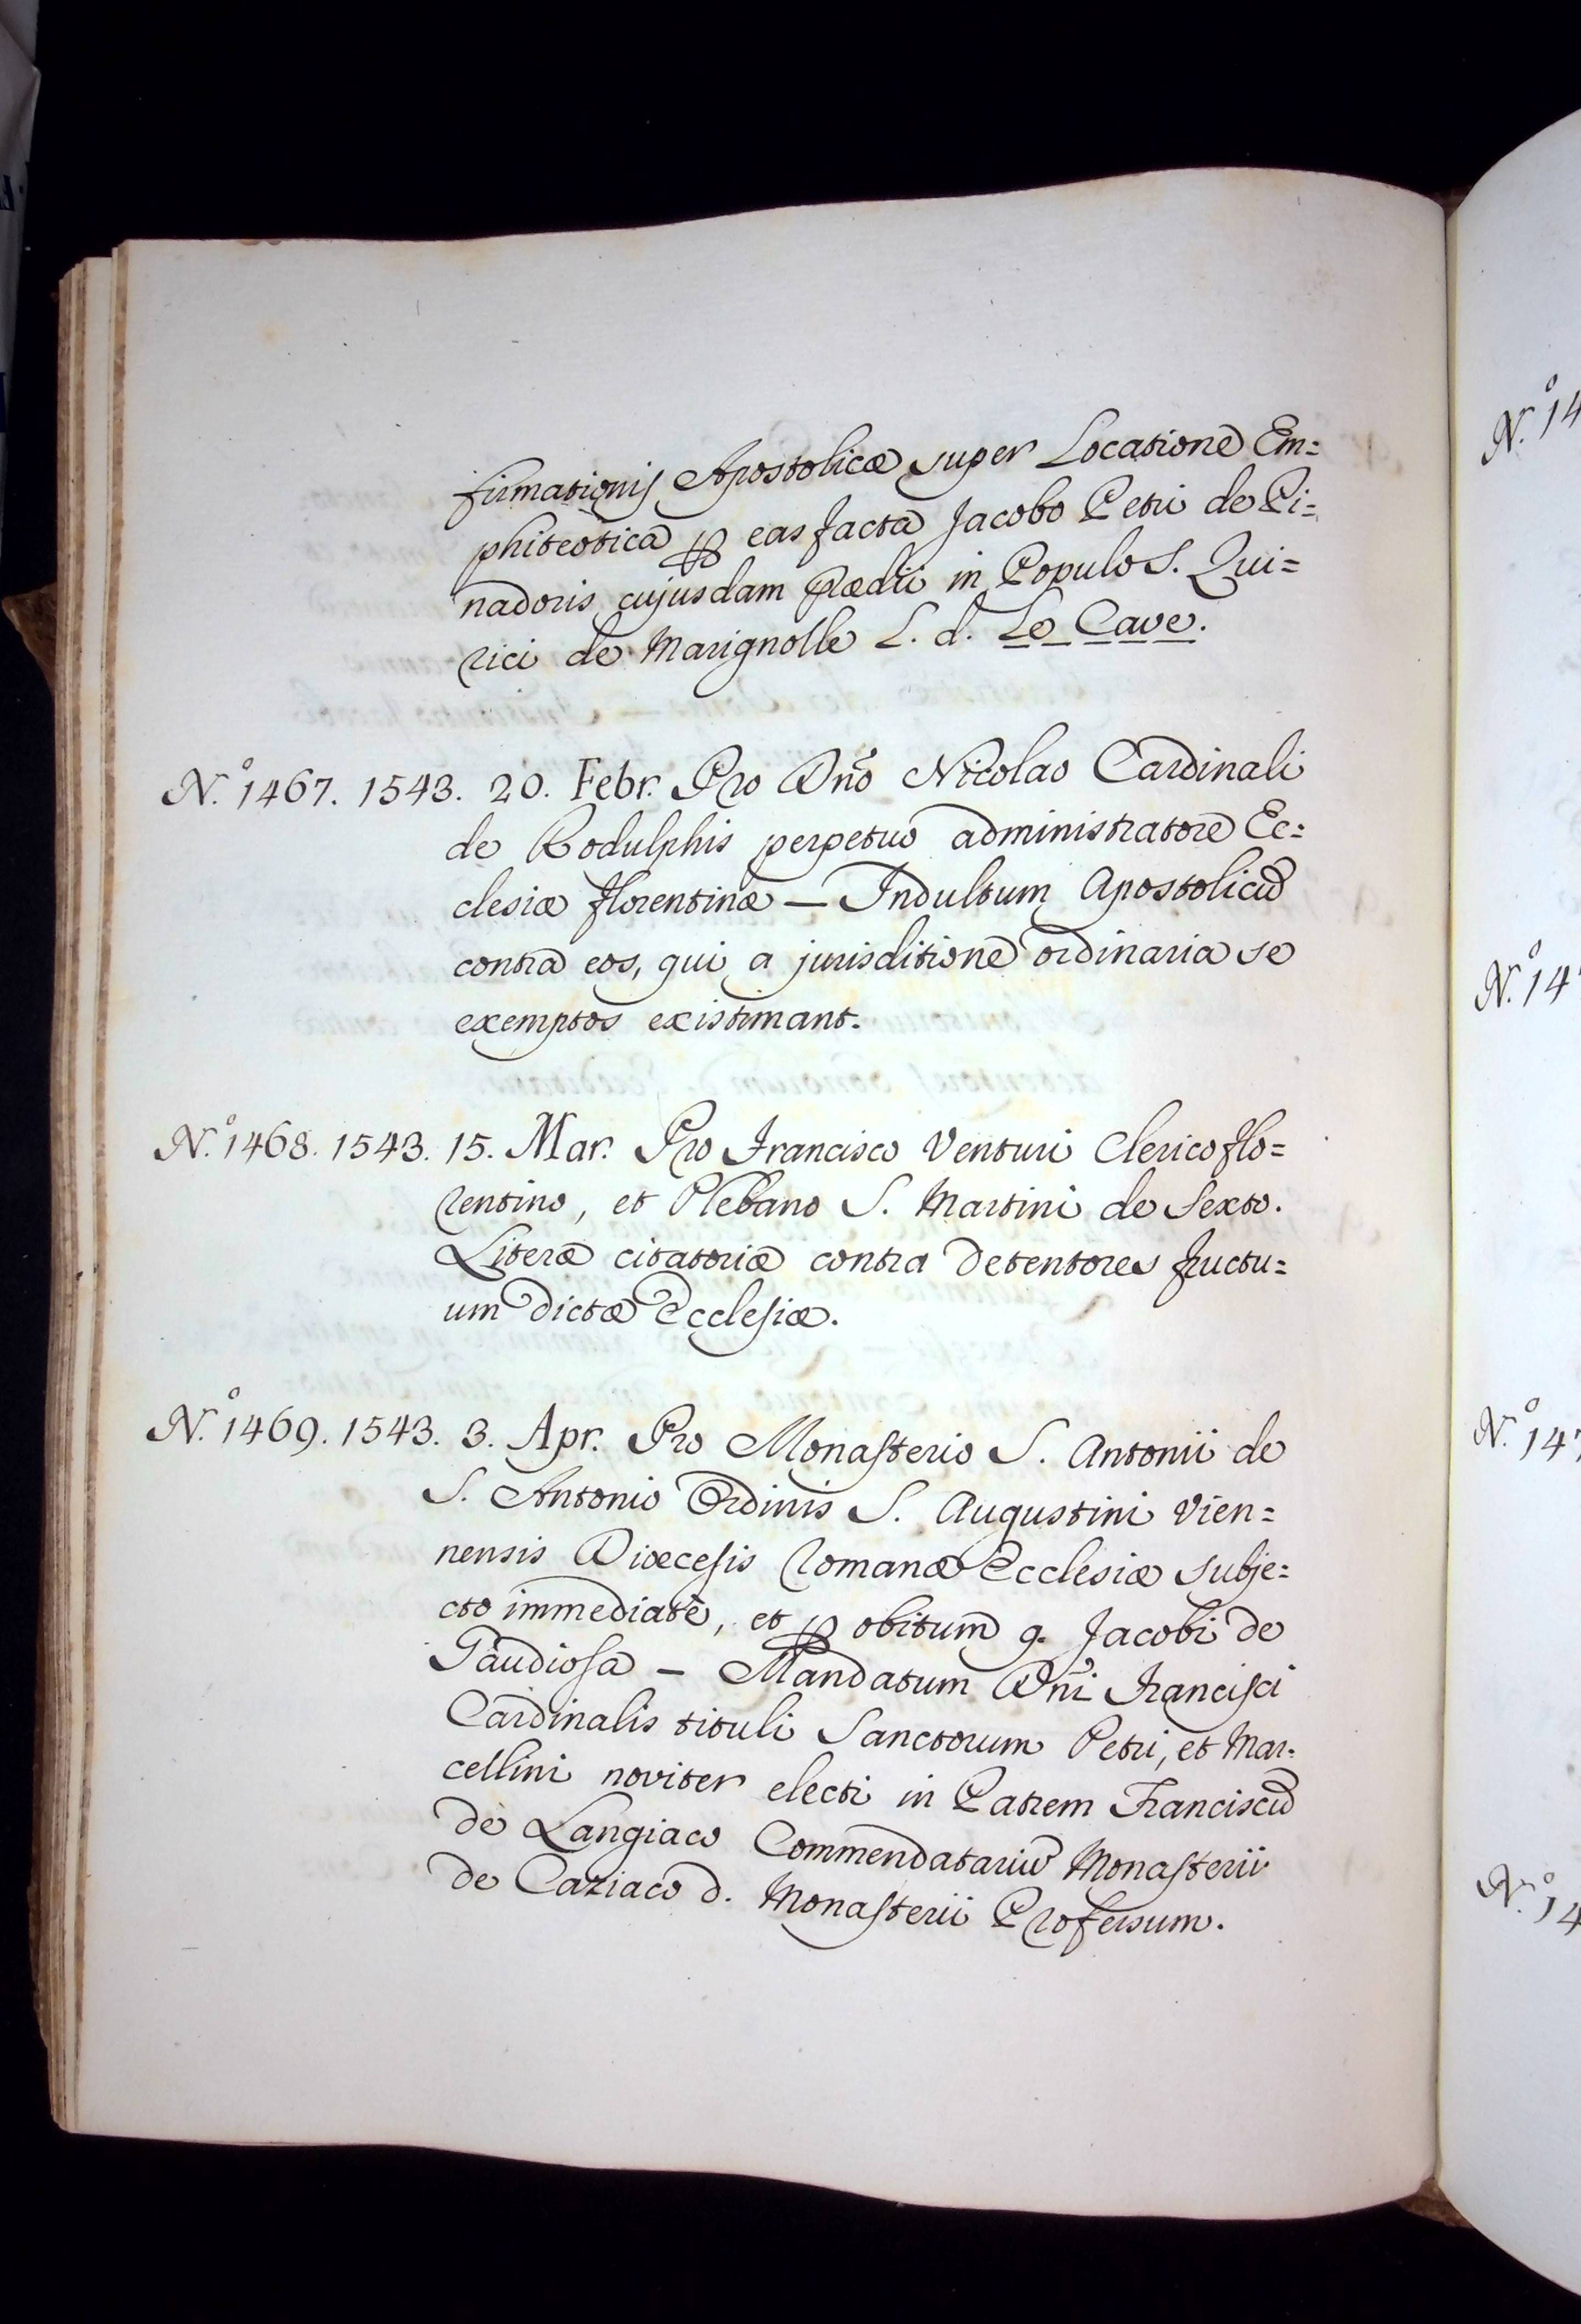 firmationis Apostolicæ super Locatione Em=
phiteotica ꝑ eas facta Jacobo Petri de Pi=
nadoris cujusdam Prædii in Populo S. Qui=
rici de Marignolle L. d. Le Cave.
N.º 1467. 1543. 20. Febr. Pro Dño Nicolao Cardinali
de Rodulphis perpetuo administratore Ec=
clesiæ florentinæ — Indultum Apostolicū
contra eos, qui a jurisditione ordinaria se
exemptos existimant.
N.º 1468. 1543. 15. Mar. Pro Francisco Venturi Clerico flo=
rentino, et Plebano S. Martini de Sexto.
Literæ citatoriæ contra Detentores fructu=
um dictæ Ecclesiæ.
N.º 1469. 1543. 3. Apr. Pro Monasterio S. Antonii de
S. Antonio Ordinis S. Augustini Vien=
nensis Diœcesis Romanæ Ecclesiæ subje=
cto immediate, et ꝑ obitum q. Jacobi de
Gaudiosa — Mandatum Dñi Francisci
Cardinalis tituli Sanctorum Petri, et Mar=
cellini noviter electi in Patrem Franciscū
de Langiaco Commendatariū Monasterii
de Caziaco d. Monasterii Professum.
N.º 14
N.º 14
N.º 14
N.º 14